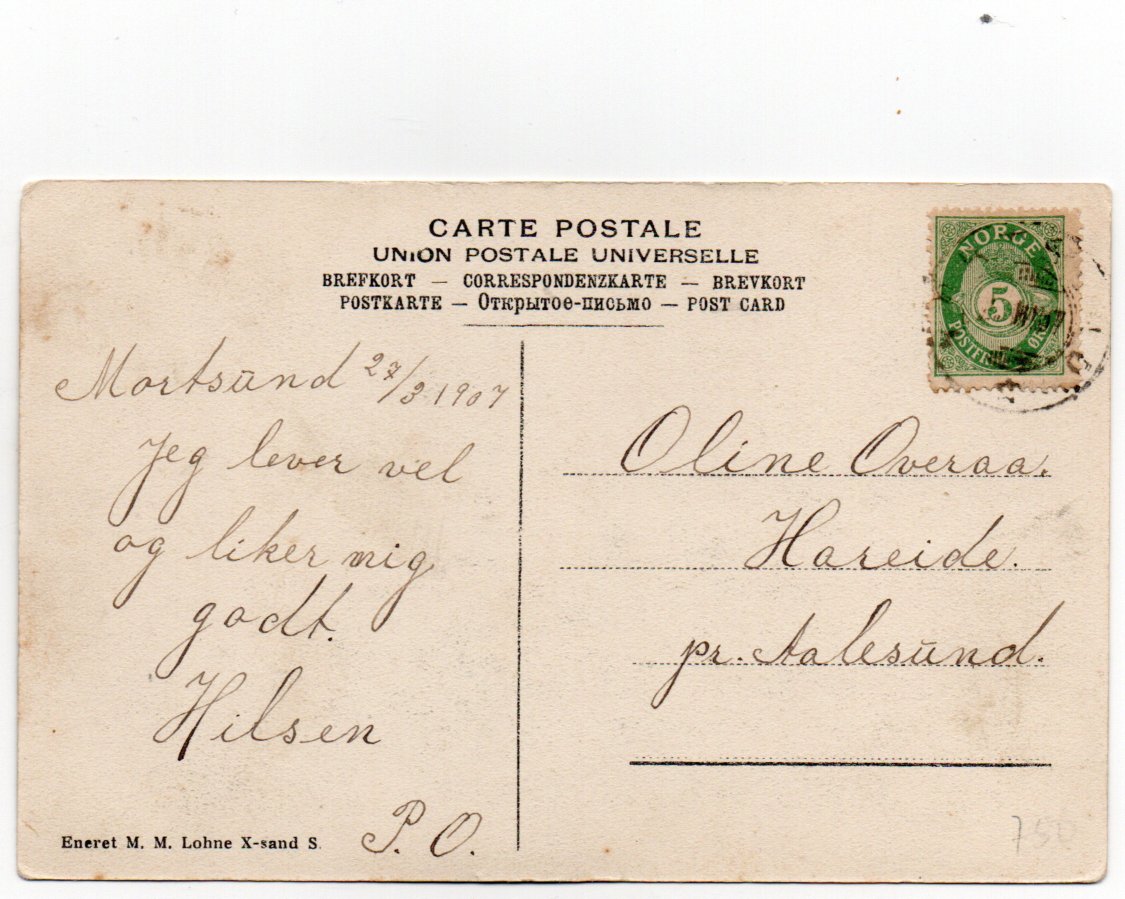 CARTE POSTALE
UNION POSTALE UNIVERSELLE
BREFKORT — CORRESPONDENZKARTE — BREVKORT
POSTKARTE — Открытое-письмо — POST CARD
NORGE
5
POSTFRIM
Mortsūnd 27/3 1907
Jeg lever vel
og liker mig
godt.
Hilsen
P. O.
Oline Overaa.
Hareide.
pr. Aalesūnd.
Eneret M. M. Lohne X-sand S.
750